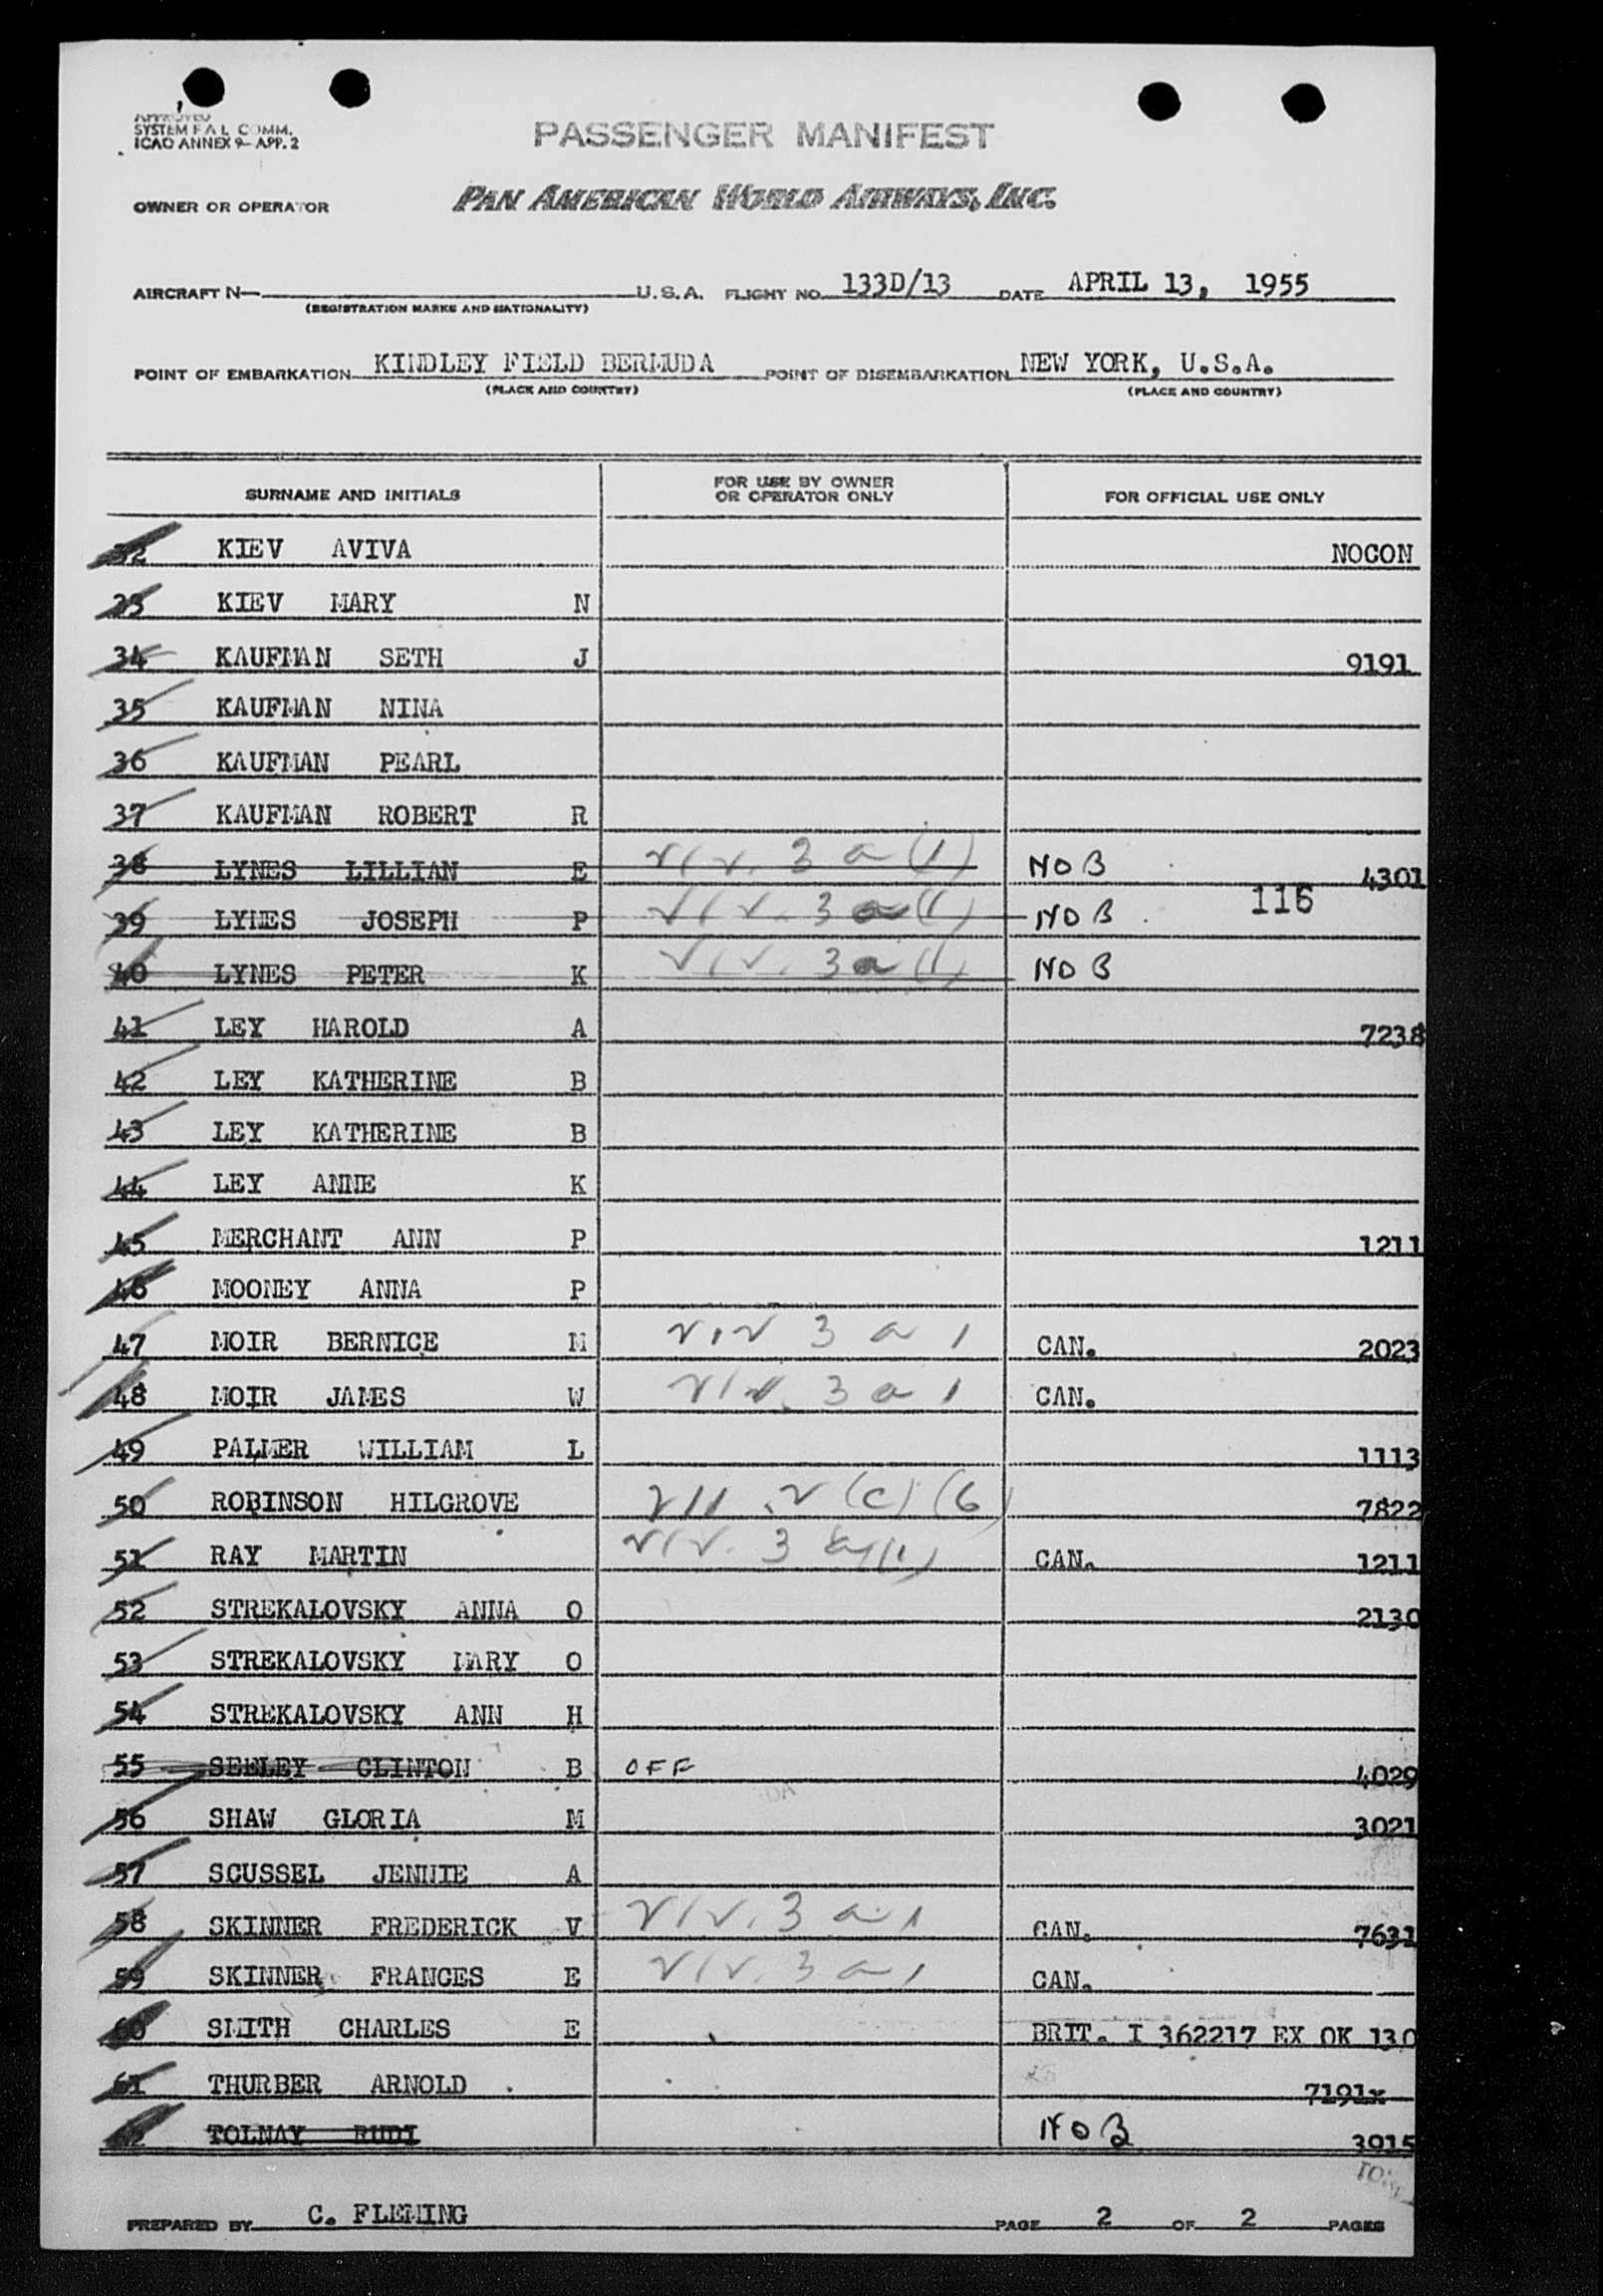 APPROVED
SYSTEM F A L COMM.
ICAO ANNEX 9- APP. 2
PASSENGER MANIFEST
OWNER OR OPERATOR PAN AMERICAN WORLD AIRWAYS, INC.
AIRCRAFT N- U.S.A. FLIGHT NO. 133D/13 DATE APRIL 13, 1955
(REGISTRATION MARKS AND NATIONALITY)
POINT OF EMBARKATION KINDLEY FIELD BERMUDA POINT OF DISEMBARKATION NEW YORK, U.S.A.
(PLACE AND COUNTRY) (PLACE AND COUNTRY)
SURNAME AND INITIALS FOR USE BY OWNER OR OPERATOR ONLY FOR OFFICIAL USE ONLY
32 KIEV AVIVA NOCON
33 KIEV MARY N
34 KAUFMAN SETH J 9191
35 KAUFMAN NINA
36 KAUFMAN PEARL
37 KAUFMAN ROBERT R
38 LYNES LILLIAN E 3 a (1) NOB 4301
116
39 LYNES JOSEPH P 3 a (1) NOB
40 LYNES PETER K 3 a (1) NOB
41 LEY HAROLD A 7238
42 LEY KATHERINE B
43 LEY KATHERINE B
44 LEY ANNE K
45 MERCHANT ANN P 1211
46 MOONEY ANNA P
47 MOIR BERNICE M 3 a 1 CAN. 2023
48 MOIR JAMES W 3 a 1 CAN.
49 PALMER WILLIAM L 1113
50 ROBINSON HILGROVE (c) (6) 7822
51 RAY MARTIN 3 (1) CAN. 1211
52 STREKALOVSKY ANNA O 2130
53 STREKALOVSKY MARY O
54 STREKALOVSKY ANN H
55 SEELEY CLINTON B OFF 4029
56 SHAW GLORIA M 3021
57 SCUSSEL JENNIE A
58 SKINNER FREDERICK V 3 a 1 CAN. 7631
59 SKINNER FRANCES E 3 a 1 CAN.
60 SMITH CHARLES E BRIT. I 362217 EX OK 130
61 THURBER ARNOLD 7191x
62 TOLNAY RUDI NOB 3915
PREPARED BY C. FLEMING PAGE 2 OF 2 PAGES